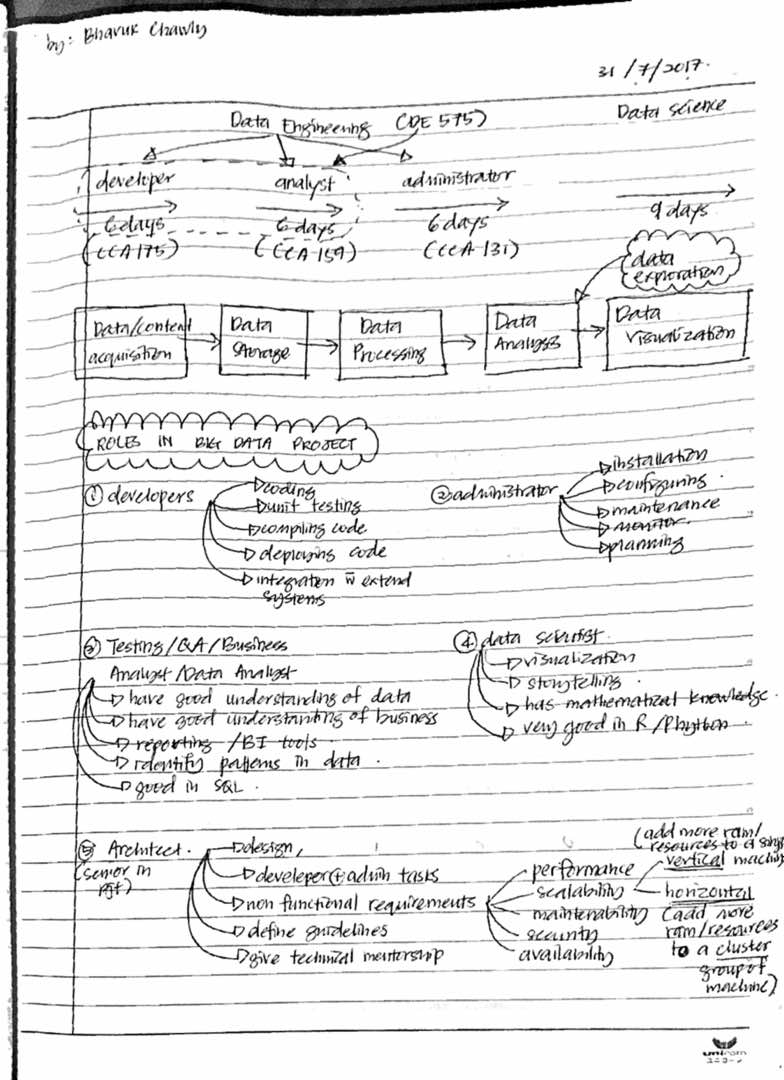 by: Bhavuk Chawly
31/7/2017.
Data Engineering (DE 575)
Data science
developer
analyst
administrator
6 days
6 days
6 days
9 days
(CCA 175)
(CCA 159)
(CCA 131)
data
exploration
Data/content
acquisition
Data
Storage
Data
Processing
Data
Analysis
Data
Visualization
ROLES IN BIG DATA PROJECT
① developers
coding
unit testing
compiling code
deploying code
integration w̄ extend
systems
② administrator
installation
configuring.
maintenance
monitor.
planning
③ Testing/QA/Business
Analyst/Data Analyst
have good understanding of data
have good understanding of business
reporting /BI tools
identify patterns in data.
good in SQL.
④ data scientist.
visualization
storytelling.
has mathematical knowledge.
very good in R/Phython.
⑤ Architect.
(senior in
pjt)
design,
developer + admin tasks
non functional requirements
define guidelines
give technical mentorship
performance
scalability
maintenability
security
availability
(add more ram/
resources to a
vertical machine
horizontal
(add more
ram/resources
to a cluster
group of
machine)
unicorn